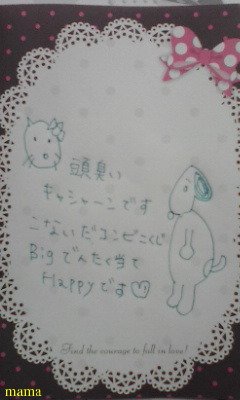 頭臭い
キャシャーンです
こないだコンビニくじ
Bigでんたく当て
Happyです♡
Find the courage to fall in love!
mama